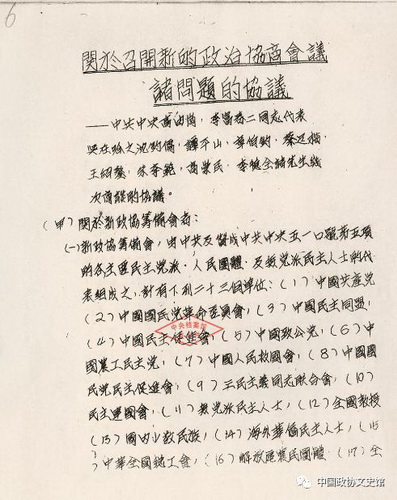 6
関於召開新的政治協商會議
諸問題的協議
——中共中央高崗,李富春二同志代表
與在哈之沈鈞儒,譚平山,章伯鈞,蔡廷鍇
王紹鏊,朱學範,高崇民,李德全諸先生幾
次商談的協議。
(甲)関於新政協籌備會者:
(一)新政協籌備會,由中共及贊成中共中央五一口號第五項
的各主要民主党派,人民團體,及無党派民主人士的代
表組成之,計有下列二十三個單位:(1)中國共產党
(2)中國國民党革命委員會,(3)中國民主同盟,
(4)中國民主促進會,(5)中國致公党,(6)中
國農工民主党,(7)中國人民救國會,(8)中國國
民党民主促進會,(9)三民主義同志聯合會,(10)
民主建國會,(11)無党派民主人士,(12)全國教授
(13)國内少數民族,(14)海外華僑民主人士,(15
)中華全國總工會,(16)解放區農民團體,(17)全
中央檔案館
中国政协文史馆